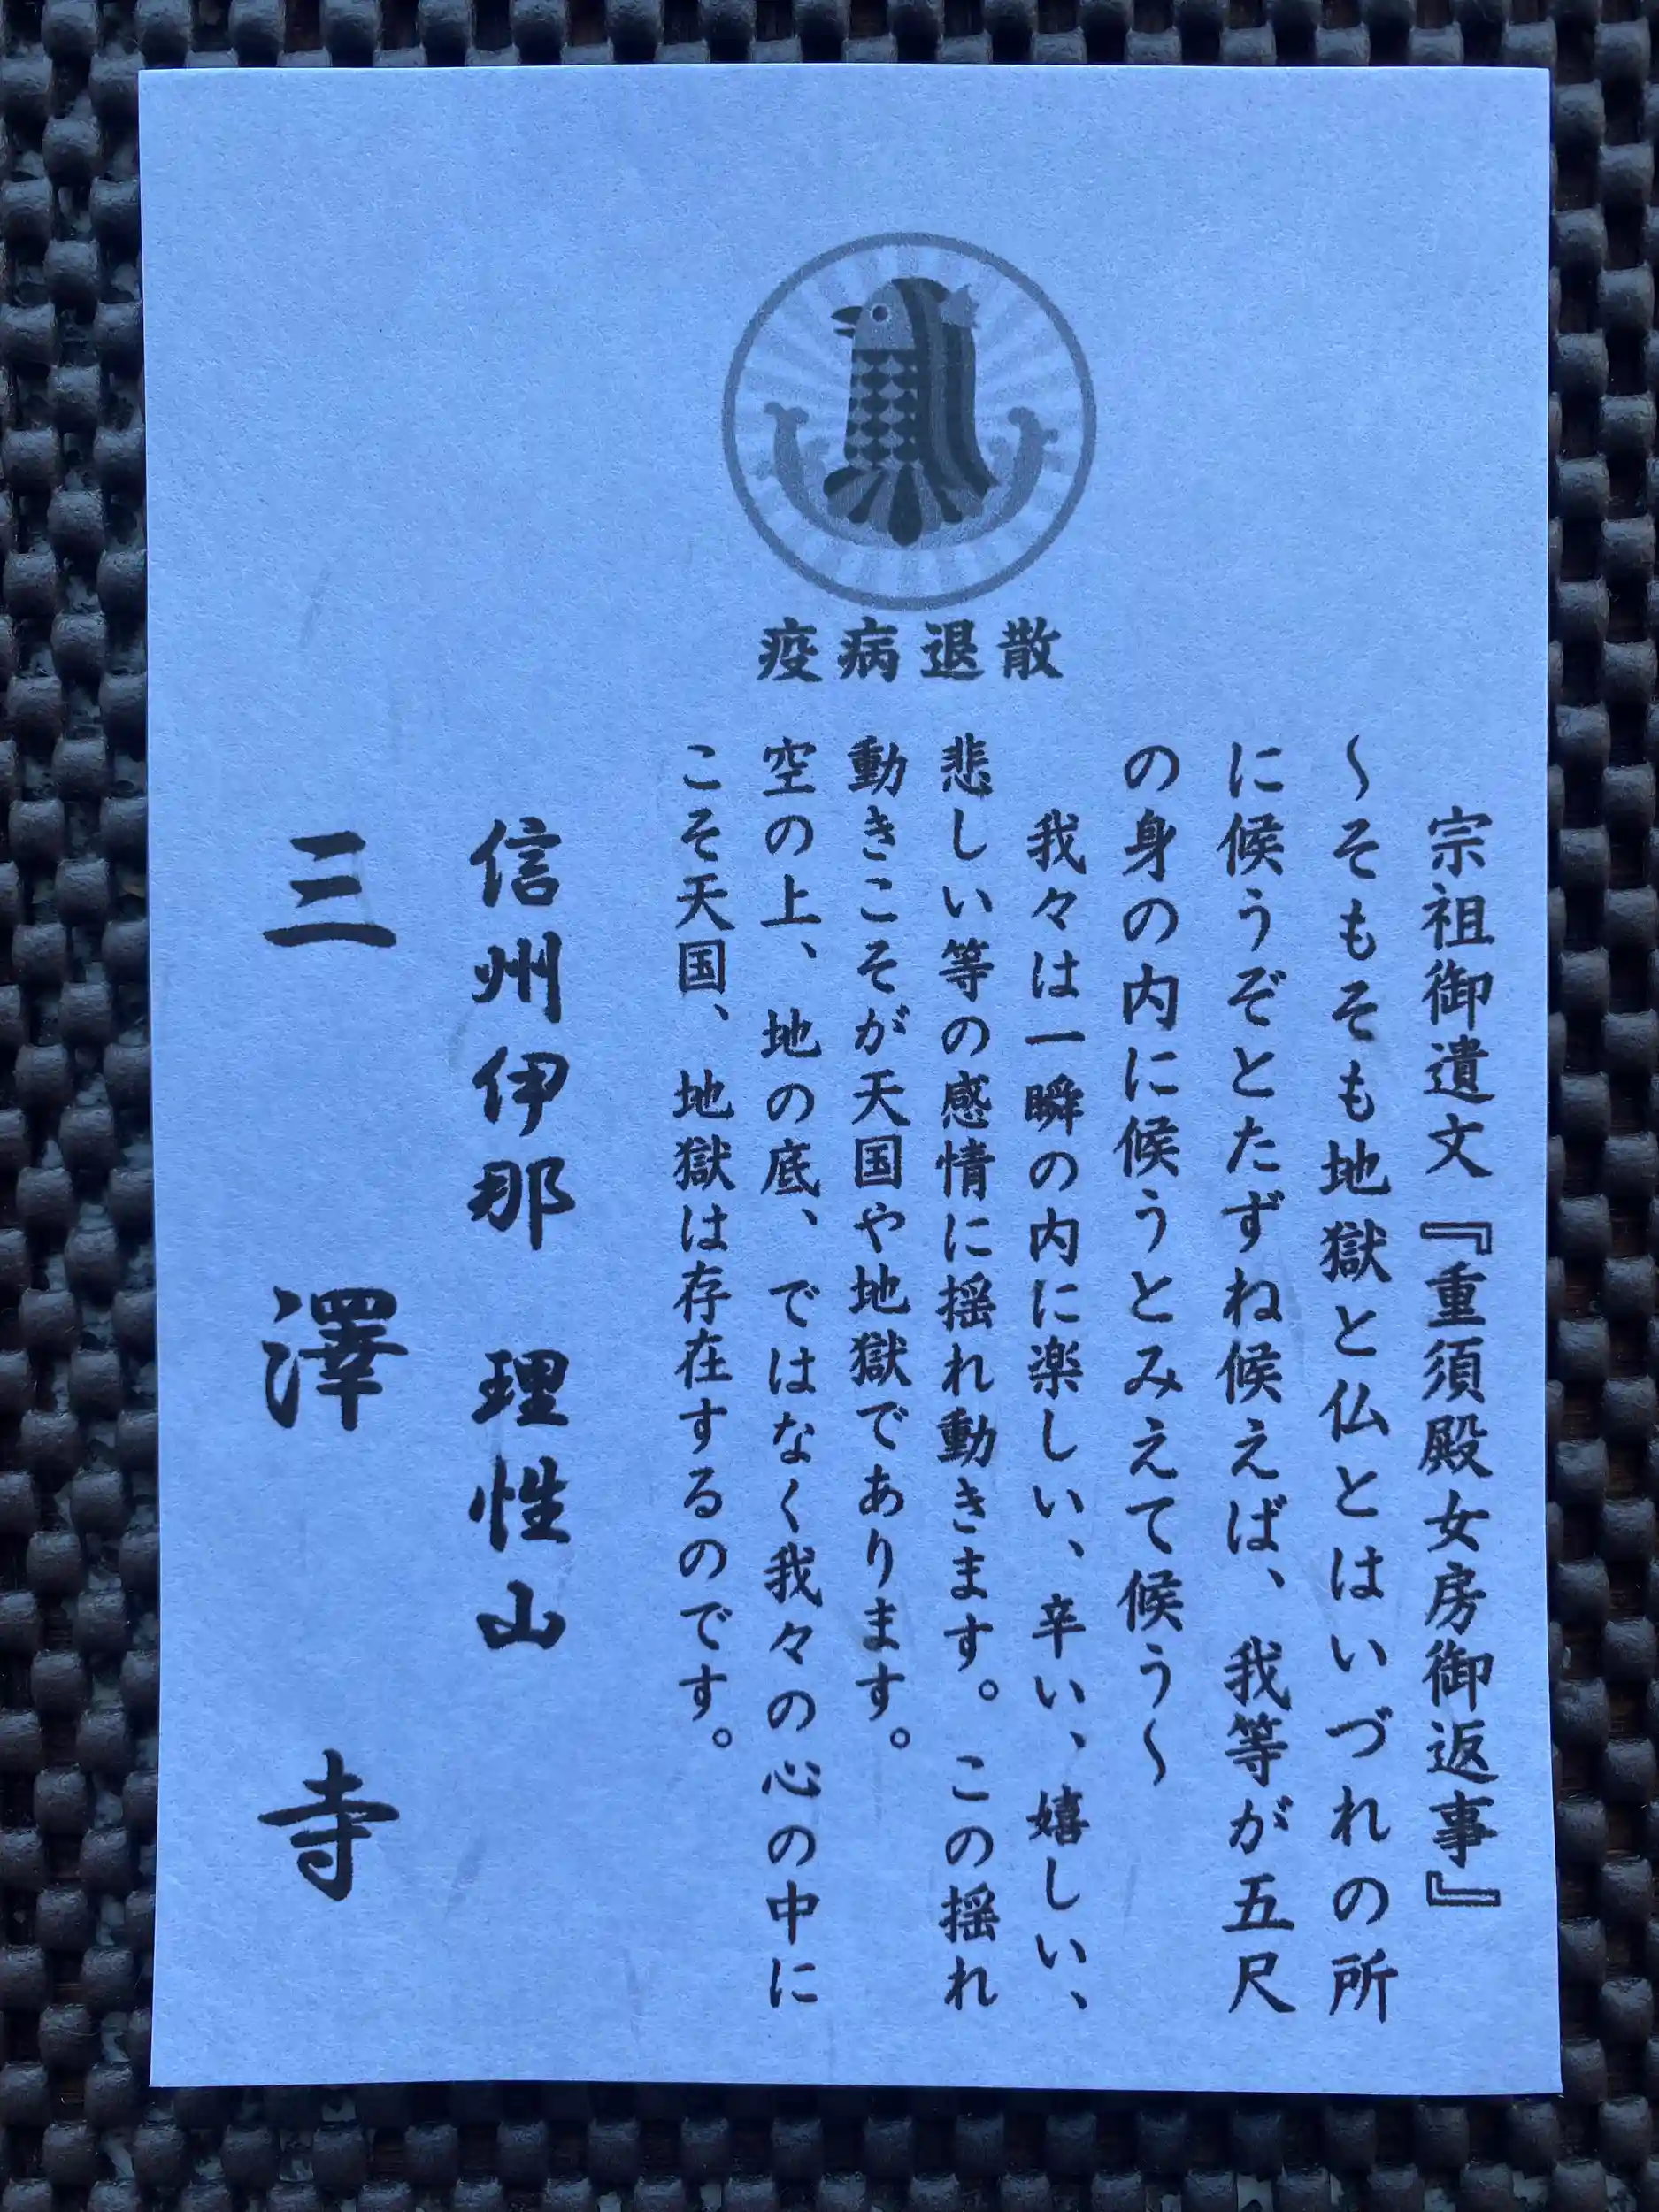 疫病退散
宗祖御遺文『重須殿女房御返事』
～そもそも地獄と仏とはいづれの所
に候うぞとたずね候えば、我等が五尺
の身の内に候うとみえて候う～
我々は一瞬の内に楽しい、辛い、嬉しい、
悲しい等の感情に揺れ動きます。この揺れ
動きこそが天国や地獄であります。
空の上、地の底、ではなく我々の心の中に
こそ天国、地獄は存在するのです。
信州伊那 理性山
三澤寺